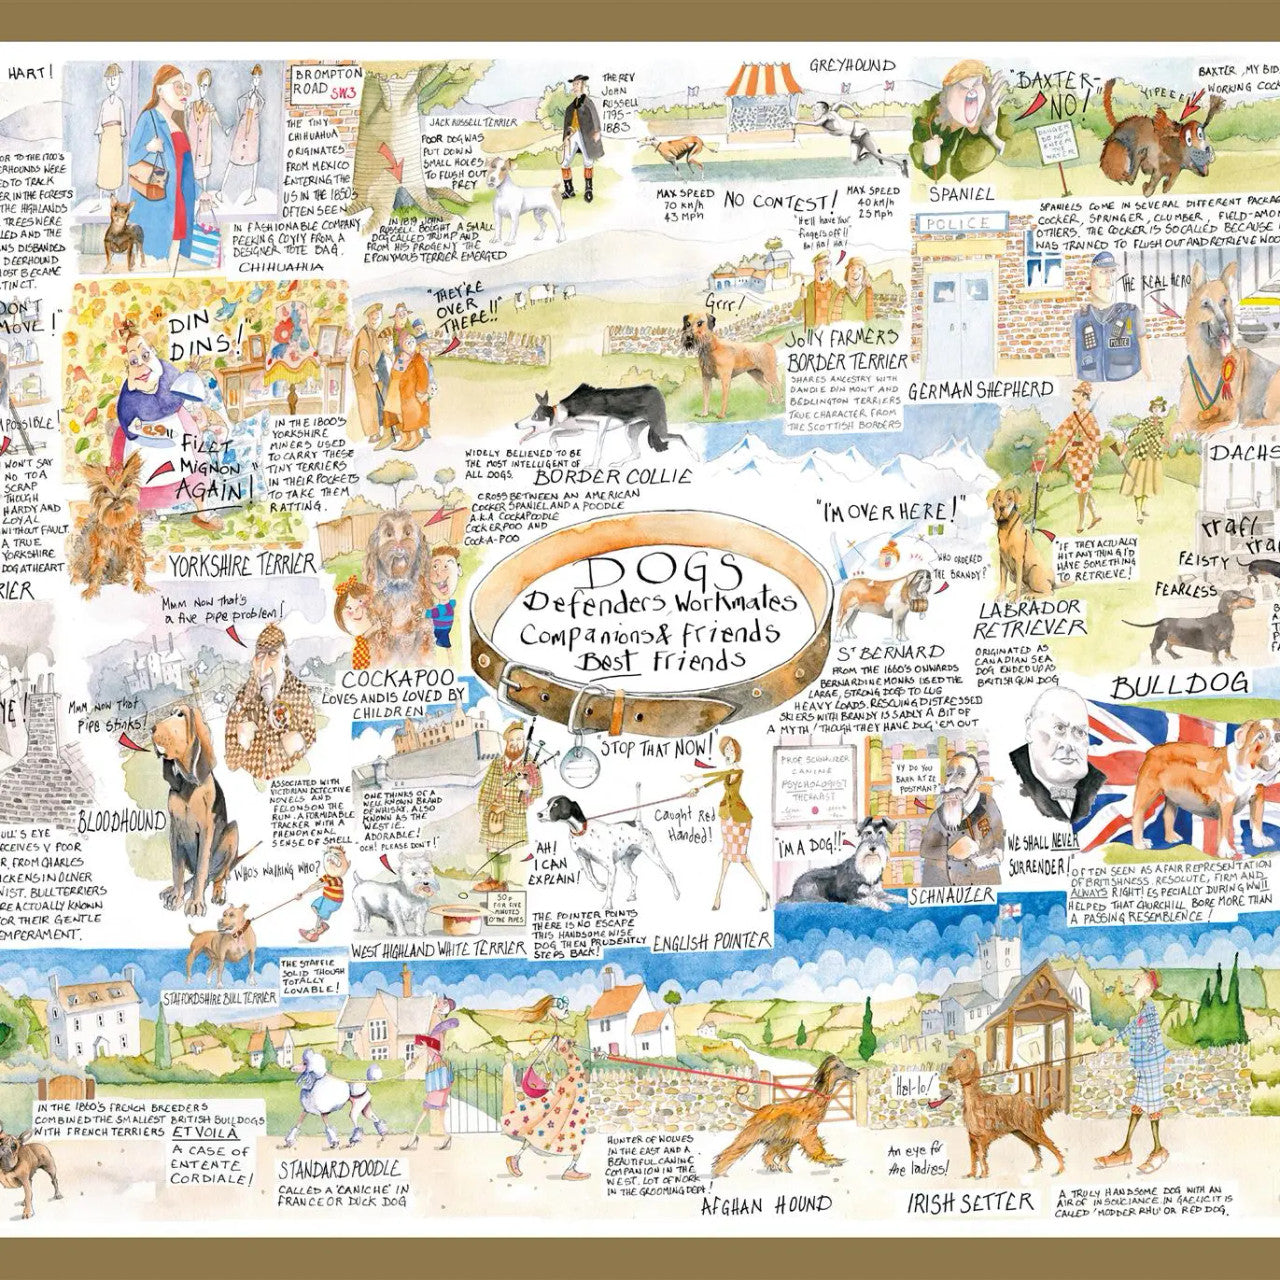 HART!
BROMPTON
ROAD SW3
THE TINY
CHIHUAHUA
ORIGINATES
FROM MEXICO
ENTERING THE
US IN THE 1850'S
OFTEN SEEN
IN FASHIONABLE COMPANY
PEEKING COYLY FROM A
DESIGNER TOTE BAG.
CHIHUAHUA
JACK RUSSELL TERRIER
POOR DOG WAS
PUT DOWN
SMALL HOLES
TO FLUSH OUT
PREY
THE REV
JOHN
RUSSELL
1795-
1883
IN 1819 JOHN
RUSSELL BOUGHT A SMALL
DOG CALLED TRUMP AND
FROM HIS PROGENY THE
EPONYMOUS TERRIER EMERGED
GREYHOUND
MAX SPEED
70 KM/H
43 MPH
NO CONTEST!
MAX SPEED
40 KM/H
25 MPH
"BAXTER-
NO!"
YIPEEE!
DANGER
DO NOT
ENTER
THE
WATER
BAXTER, MY BID
WORKING COC
SPANIEL
SPANIELS COME IN SEVERAL DIFFERENT PACKA
COCKER, SPRINGER, CLUMBER, FIELD-AMO
OTHERS. THE COCKER IS SO CALLED BECAUSE
WAS TRAINED TO FLUSH OUT AND RETRIEVE WOO
OR TO THE 1700'S
ERHOUNDS WERE
ED TO TRACK
ER IN THE FORESTS
THE HIGHLANDS
TREES WERE
LED AND THE
NS DISBANDED
DEERHOUND
MOST BECAME
TINCT.
DON'T
MOVE!"
"DIN
DINS!"
"FILET
MIGNON
AGAIN!"
IN THE 1800'S
YORKSHIRE
MINERS USED
TO CARRY THESE
TINY TERRIERS
IN THEIR POCKETS
TO TAKE THEM
RATTING.
YORKSHIRE TERRIER
POSSIBLE!
WON'T SAY
NO TO A
SCRAP
THOUGH
HARDY AND
LOYAL
WITHOUT FAULT.
A TRUE
YORKSHIRE
DOG AT HEART
RIER
"THEY'RE
OVER
THERE!!"
WIDELY BELIEVED TO BE
THE MOST INTELLIGENT OF
ALL DOGS.
BORDER COLLIE
Grrr!
"He'll have your
fingers off!"
Ha! Ha! Ha!
JOLLY FARMERS
BORDER TERRIER
SHARES ANCESTRY WITH
DANDIE DIN MONT AND
BEDLINGTON TERRIERS
TRUE CHARACTER FROM
THE SCOTTISH BORDERS
POLICE
POLICE
THE REAL HERO
GERMAN SHEPHERD
DACHS
CROSS BETWEEN AN AMERICAN
COCKER SPANIEL AND A POODLE
A.K.A COCKAPOODLE
COCKERPOO AND
COCK-A-POO
COCKAPOO
LOVES AND IS LOVED BY
CHILDREN
DOGS
Defenders, Workmates
Companions & Friends
Best Friends
"I'M OVER HERE!"
WHO ORDERED
THE BRANDY?
ST BERNARD
FROM THE 1660'S ONWARDS
BERNARDINE MONKS USED THE
LARGE, STRONG DOGS TO LUG
HEAVY LOADS. RESCUING DISTRESSED
SKIERS WITH BRANDY IS SADLY A BIT OF
A MYTH! THOUGH THEY HAVE DUG 'EM OUT
"IF THEY ACTUALLY
HIT ANYTHING I'D
HAVE SOMETHING
TO RETRIEVE!
LABRADOR
RETRIEVER
ORIGINATED AS
CANADIAN SEA
DOG ENDED UP AS
BRITISH GUN DOG
rraf!
rra
FEISTY
FEARLESS
Mmm Now that's
a five pipe problem!
Mmm, now that
Pipe stinks!
BLOODHOUND
ASSOCIATED WITH
VICTORIAN DETECTIVE
NOVELS AND
FELONS ON THE
RUN. A FORMIDABLE
TRACKER WITH A
PHENOMENAL
SENSE OF SMELL.
WHO'S WALKING WHO?
YE!
ULL'S EYE
RECEIVES V POOR
R FROM CHARLES
ICKENS IN OLIVER
WIST. BULL TERRIERS
RE ACTUALLY KNOWN
FOR THEIR GENTLE
EMPERAMENT.
STAFFORDSHIRE BULL TERRIER
THE STAFFIE
SOLID THOUGH
TOTALLY
LOVABLE!
ONE THINKS OF A
WELL KNOWN BRAND
OF WHISKY. ALSO
KNOWN AS THE
WESTIE.
ADORABLE!
OCH! PLEASE DON'T!
50p
FOR FIVE
MINUTES
O' THE PIPES
WEST HIGHLAND WHITE TERRIER
"STOP THAT NOW!"
Caught Red
Handed!
"AH!
I CAN
EXPLAIN!
THE POINTER POINTS
THERE IS NO ESCAPE
THIS HANDSOME WISE
DOG THEN PRUDENTLY
STEPS BACK!
ENGLISH POINTER
PROF SCHNAUZER
CANINE
PSYCHOLOGIST
THERAPIST
VY DO YOU
BARK AT ZE
POSTMAN?
"I'M A DOG!!"
SCHNAUZER
BULLDOG
"WE SHALL NEVER
SURRENDER!"
OFTEN SEEN AS A FAIR REPRESENTATION
OF BRITISHNESS. RESOLUTE, FIRM AND
ALWAYS RIGHT! ESPECIALLY DURING WWII
HELPED THAT CHURCHILL BORE MORE THAN
A PASSING RESEMBLENCE!
IN THE 1860'S FRENCH BREEDERS
COMBINED THE SMALLEST BRITISH BULLDOGS
WITH FRENCH TERRIERS ET VOILÀ
A CASE OF
ENTENTE
CORDIALE!
STANDARD POODLE
CALLED A 'CANICHE' IN
FRANCE OR DUCK DOG
HUNTER OF WOLVES
IN THE EAST AND A
BEAUTIFUL CANINE
COMPANION IN THE
WEST. LOT OF WORK
IN THE GROOMING DEPT!
AFGHAN HOUND
Hel-lo!
An eye for
the ladies!
IRISH SETTER
A TRULY HANDSOME DOG WITH AN
AIR OF INSOUCIANCE. IN GAELIC IT IS
CALLED 'MODDER RHU' OR RED DOG.